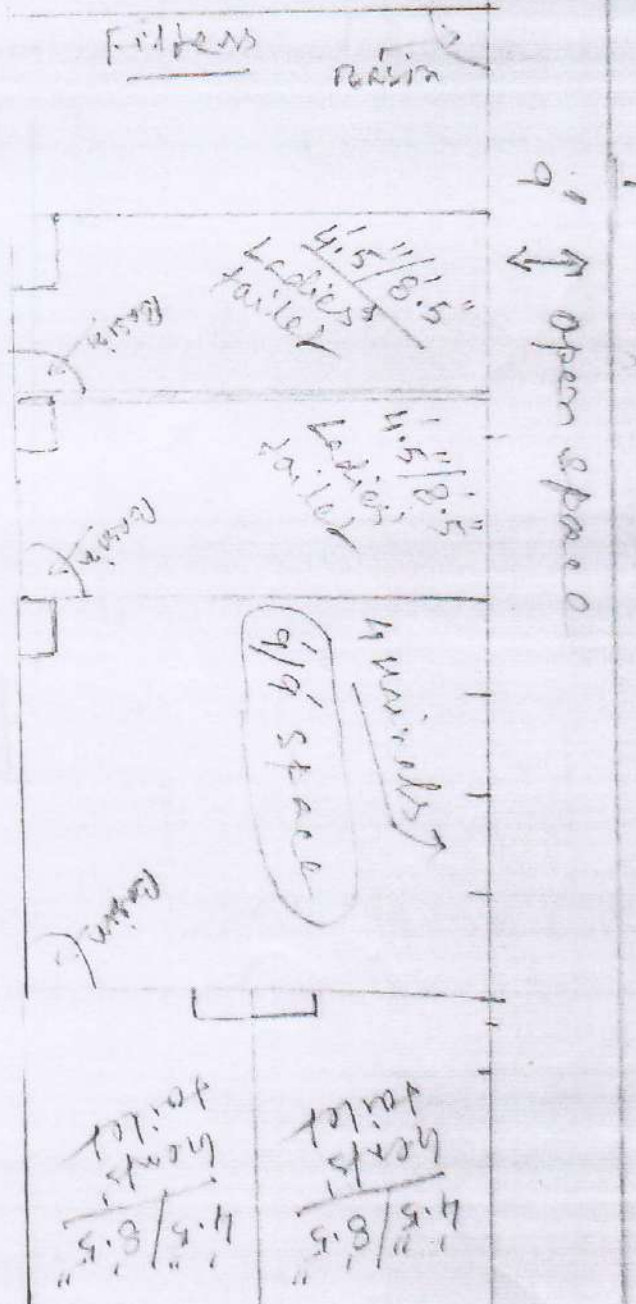 Filters
9' ↔ open space
4'.5"/8'.5"
Ladies
tailet
Basin
4'.5"/8'.5"
Ladies
tailet
Basin
9'/9' space
Basin
4'.5"/8'.5"
Gents
tailet
4'.5"/8'.5"
Gents
tailet